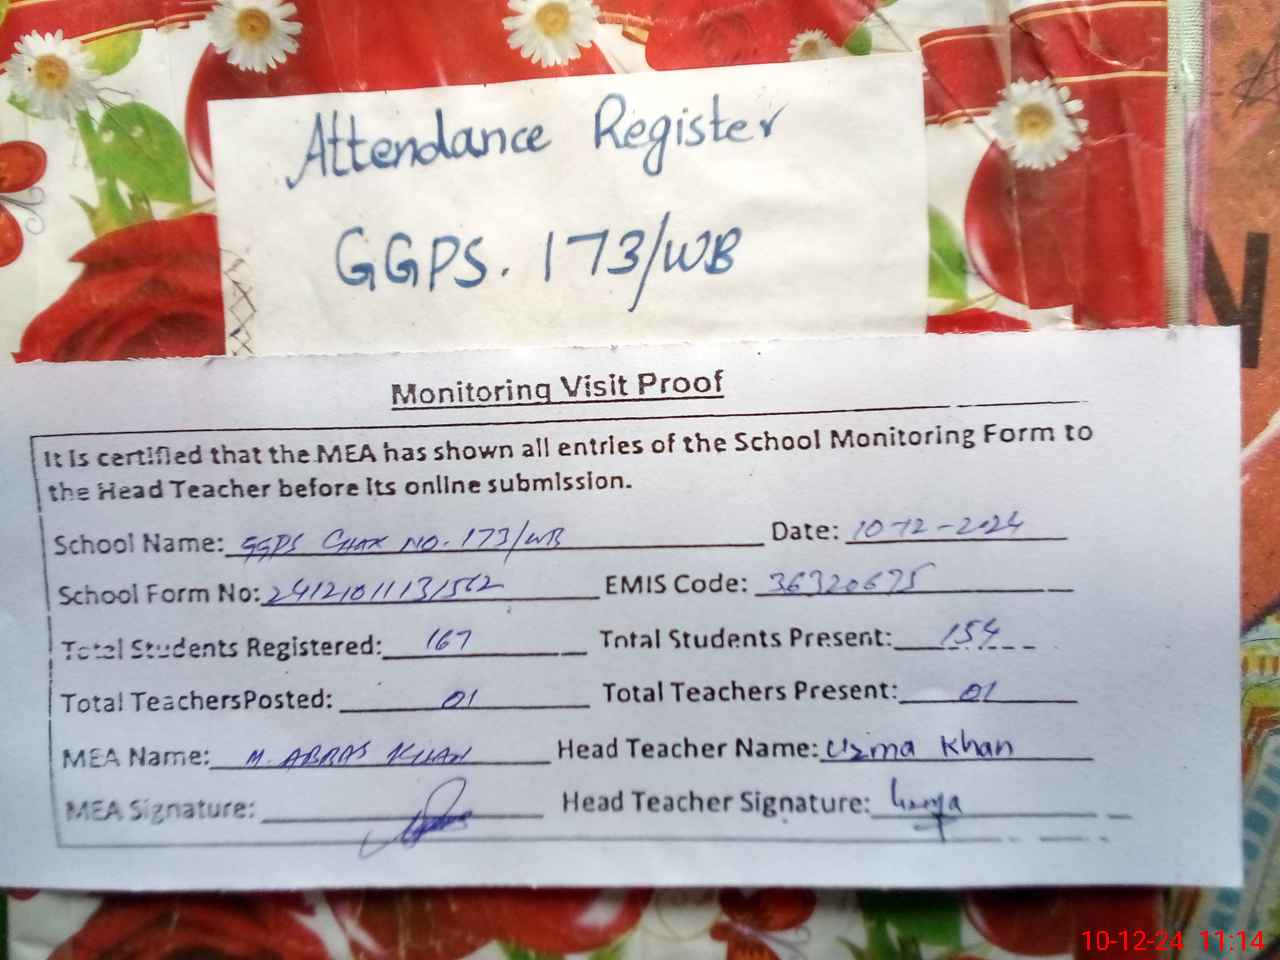 Attendance Register
GGPS. 173/WB
Monitoring Visit Proof
It is certified that the MEA has shown all entries of the School Monitoring Form to
the Head Teacher before its online submission.
School Name: GGPS Chak No. 173/WB Date: 10-12-2024
School Form No: EMIS Code: 36320675
Total Students Registered: 167 Total Students Present: 154
Total TeachersPosted: 01 Total Teachers Present: 01
MEA Name: M. ABBAS KHAN Head Teacher Name: Uzma Khan
MEA Signature: Head Teacher Signature:
10-12-24 11:14